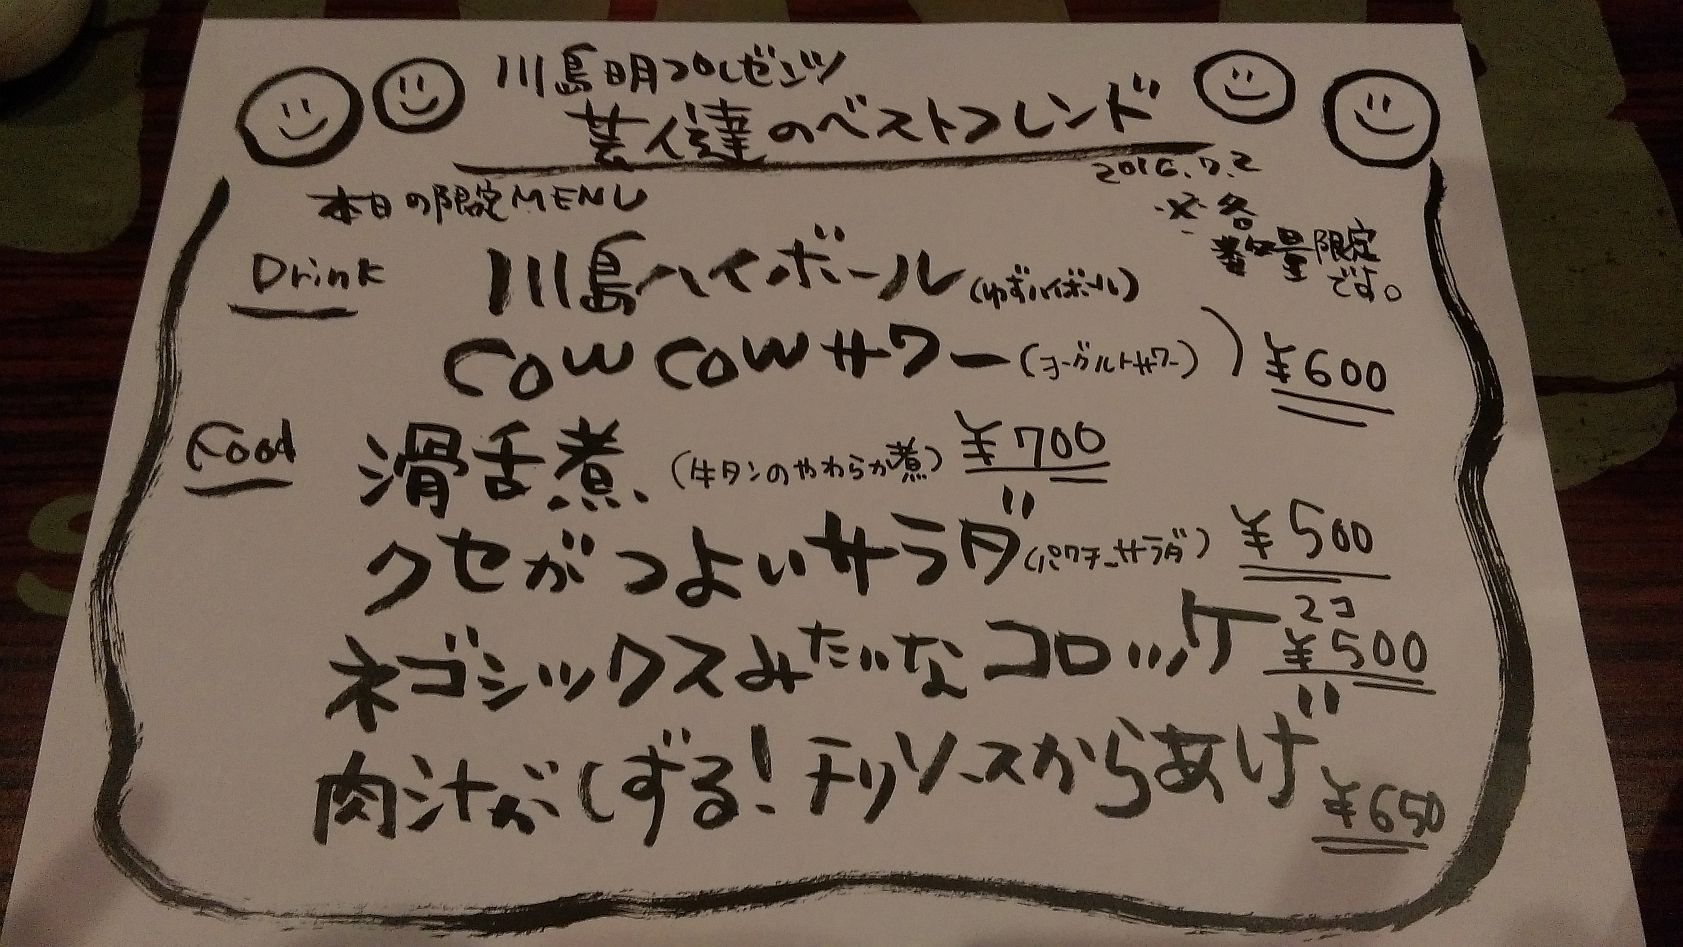 川島明プレゼンツ
芸人達のベストフレンド
2016.7.2
本日の限定MENU
※各
数量限定
です。
Drink
川島ハイボール(ゆずハイボール)
COWCOWサワー(ヨーグルトサワー)
¥600
Food
滑舌煮(牛タンのやわらか煮) ¥700
クセがつよいサラダ(パクチーサラダ) ¥500
ネゴシックスみたいなコロッケ 2コ ¥500
肉汁がしずる!チリソースからあげ ¥650